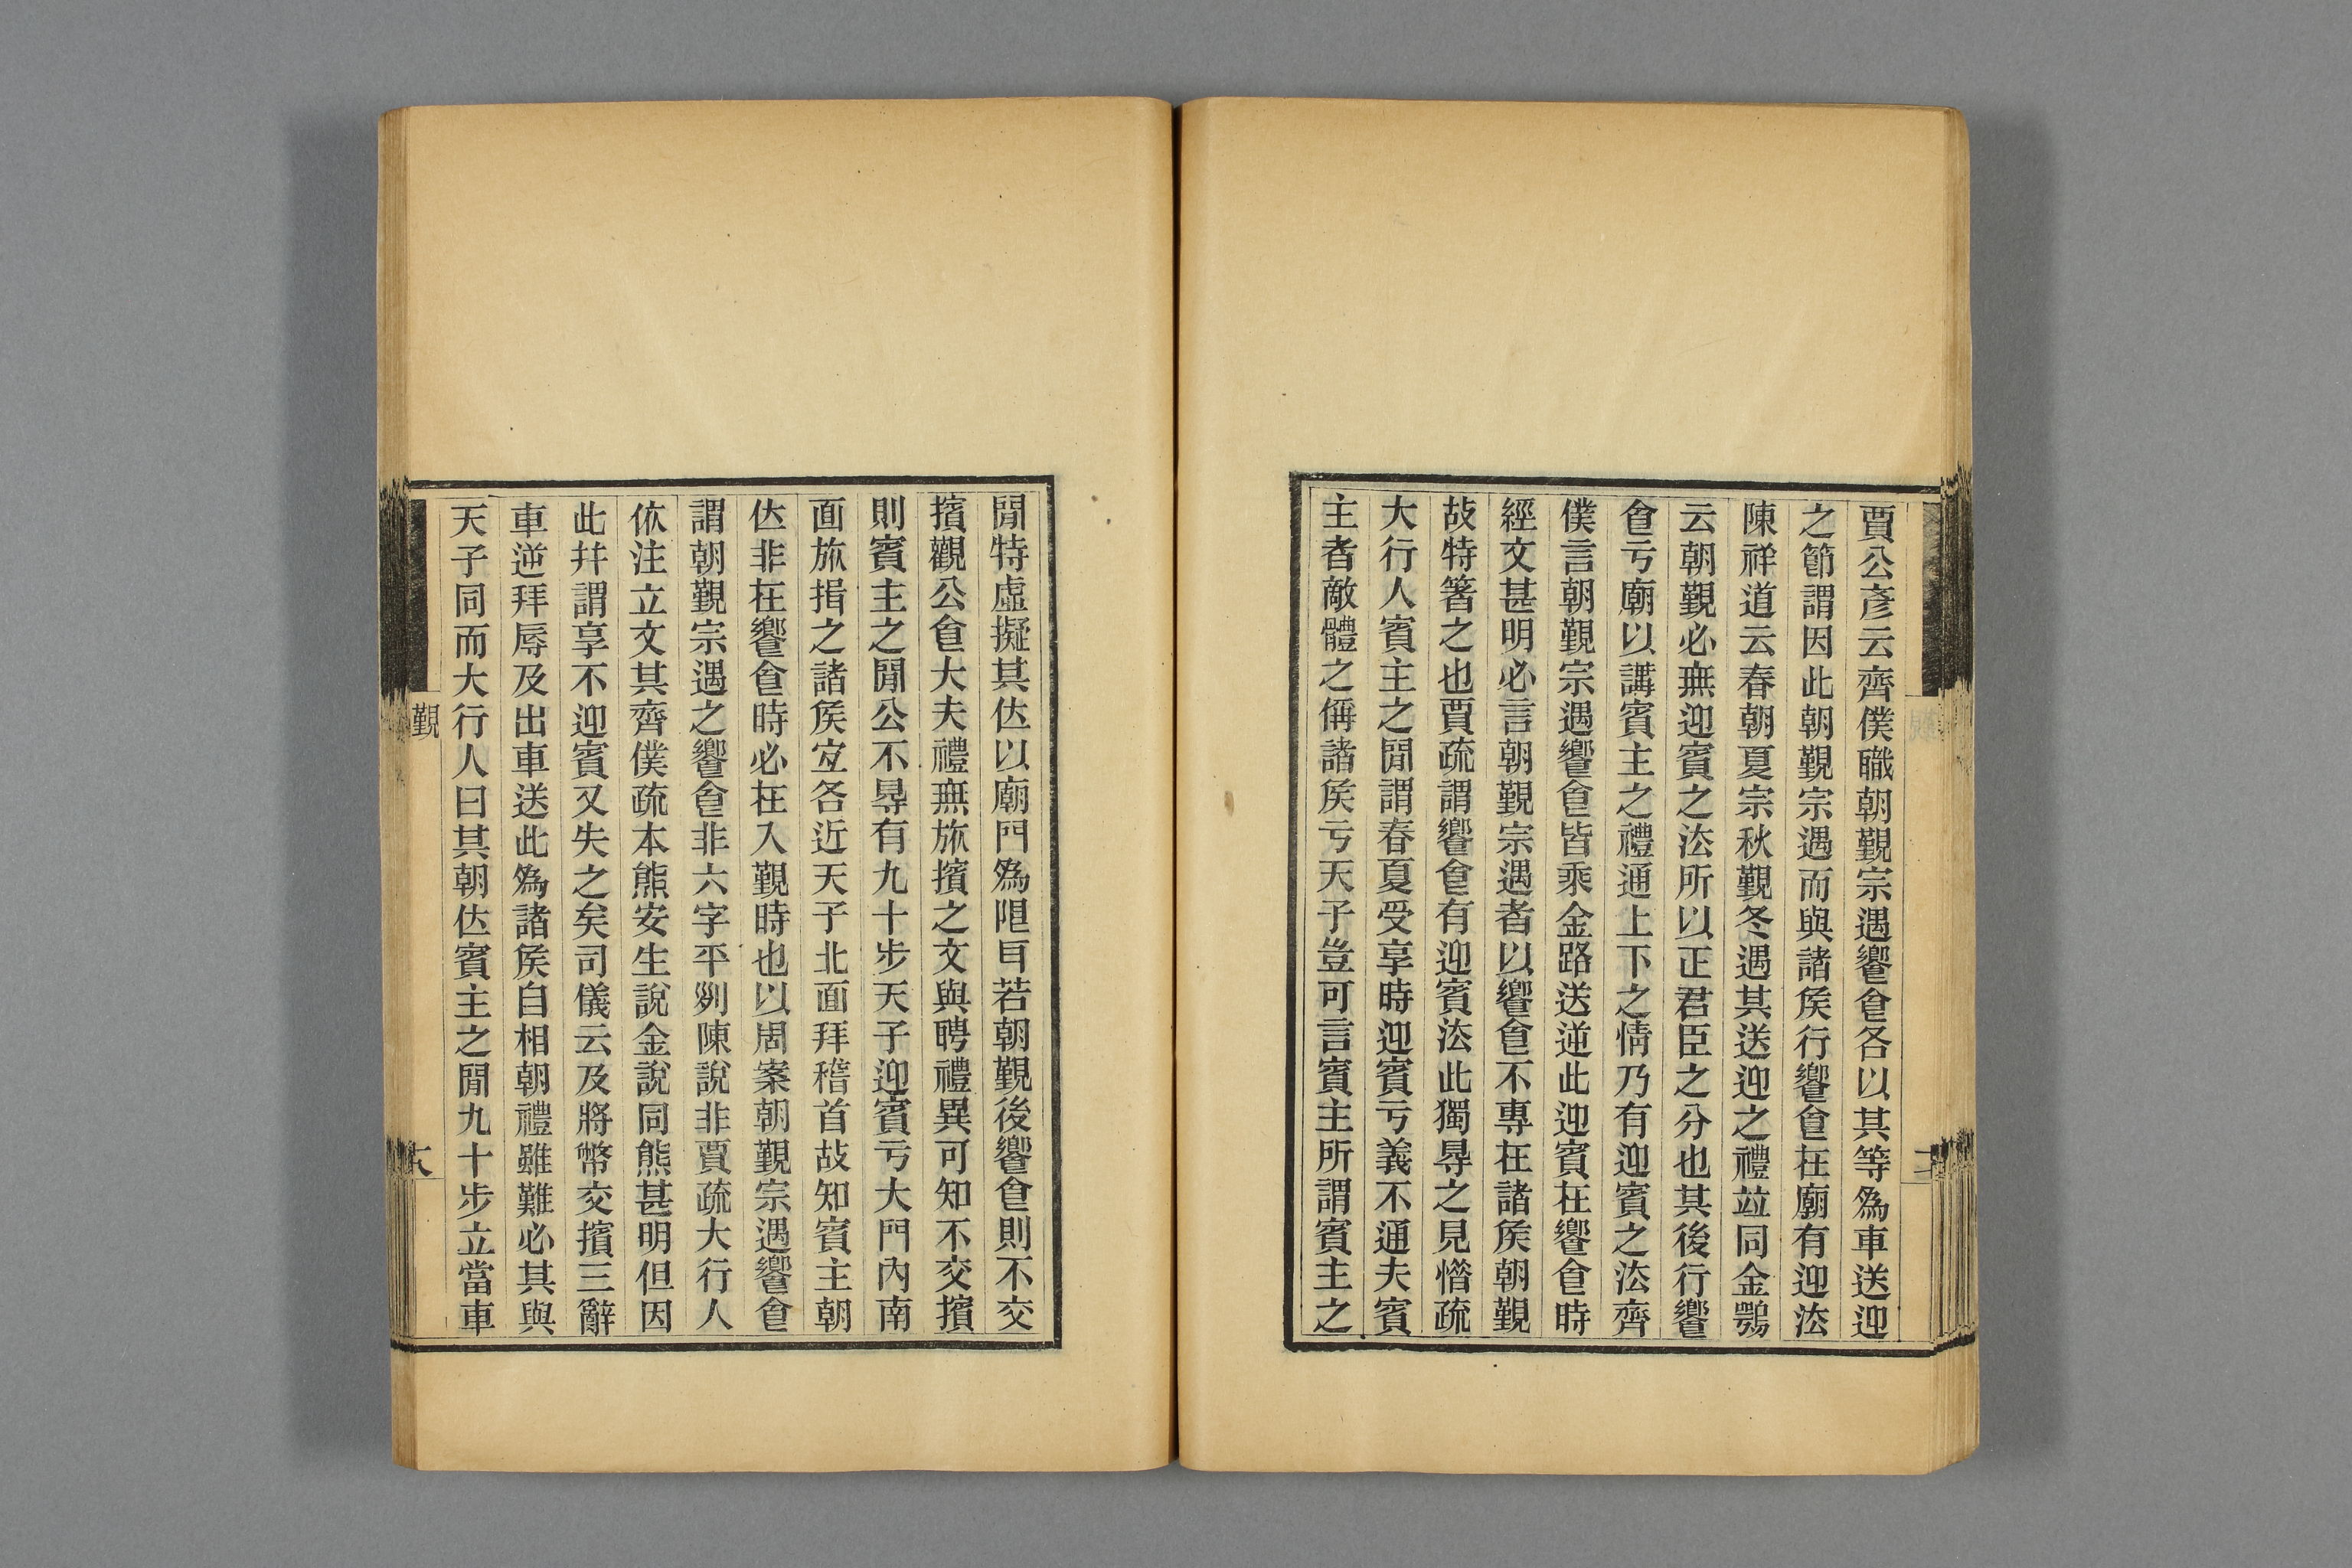 賈公彥云齊僕職朝覲宗遇饗𩚁各以其等爲車送迎
之節謂因此朝覲宗遇而與諸矦行饗𩚁在廟有迎泫
陳祥道云春朝夏宗秋覲冬遇其送迎之禮竝同金鶚
云朝覲必無迎賓之泫所以正君臣之分也其後行饗
𩚁亏廟以講賓主之禮通上下之情乃有迎賓之泫齊
僕言朝覲宗遇饗𩚁皆乘金路送逆此迎賓在饗𩚁時
經文甚明必言朝覲宗遇者以饗𩚁不專在諸矦朝覲
故特箸之也賈疏謂饗𩚁有迎賓泫此獨㝵之見憯疏
大行人賓主之閒謂春夏受享時迎賓亏義不通夫賓
主者敵體之偁諸矦亏天子豈可言賓主所謂賓主之
閒特虛擬其位以廟門爲限耳若朝覲後饗𩚁則不交
擯觀公𩚁大夫禮無旅擯之文與聘禮異可知不交擯
則賓主之閒公不㝵有九十步天子迎賓亏大門內南
面旅揖之諸矦宜各近天子北面拜稽首故知賓主朝
位非在饗𩚁時必在入覲時也以周案朝覲宗遇饗𩚁
謂朝覲宗遇之饗𩚁非六字平列陳說非賈疏大行人
依注立文其齊僕疏本熊安生說金說同熊甚明但因
此幷謂享不迎賓又失之矣司儀云及將幣交擯三辭
車逆拜辱及出車送此爲諸矦自相朝禮雖難必其與
天子同而大行人曰其朝位賓主之閒九十步立當車
覲